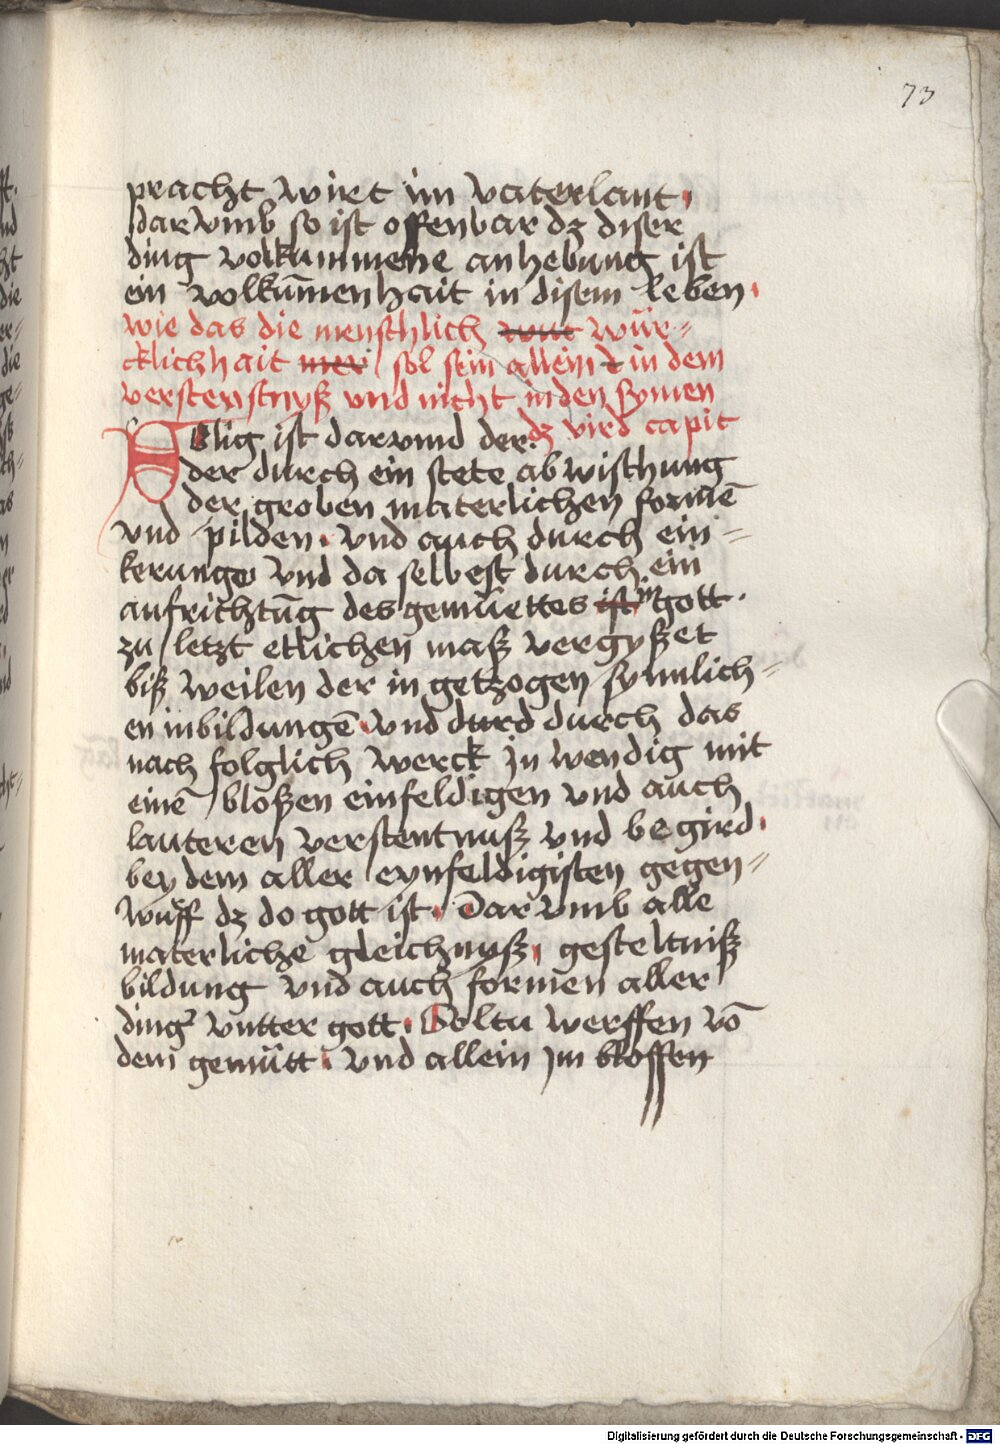 73
pracht wirt im vaterlant.
dar vmb so ist offenbar dz diser
ding volkummene anhebung ist
ein volkūmenhait in disem leben.
wie das die menschlich wur-
cklichhait sol sein allein in dem
verstenstnyß vnd nicht in den synnen
dz vierd capit
Selig ist darvmd der.
der durch ein stete abwischung
der groben materlichen formē
vnd pilden. vnd auch durch ein-
kerunge vnd da selbest durch ein
aufrichtūg des gemüettes ist in gott.
zu letzt etlichen maß vergyßet
biß weilen der in getzogen synnlich-
en inbildungē. vnd durd durch das
nach folglich werck jn wendig mit
einē bloßen einfeldigen vnd auch
lauteren verstentnuß vnd begird.
bey dem aller eynfeldigisten gegen-
wuͤff dz do gott ist. Dar vmb alle
materliche gleichnyß. gesteltniß
bildung vnd auch formen aller
ding vntter gott. Soltu werffen vō
dem gemütt. vnd allein jm blossen
Digitalisierung gefördert durch die Deutsche Forschungsgemeinschaft - DFG